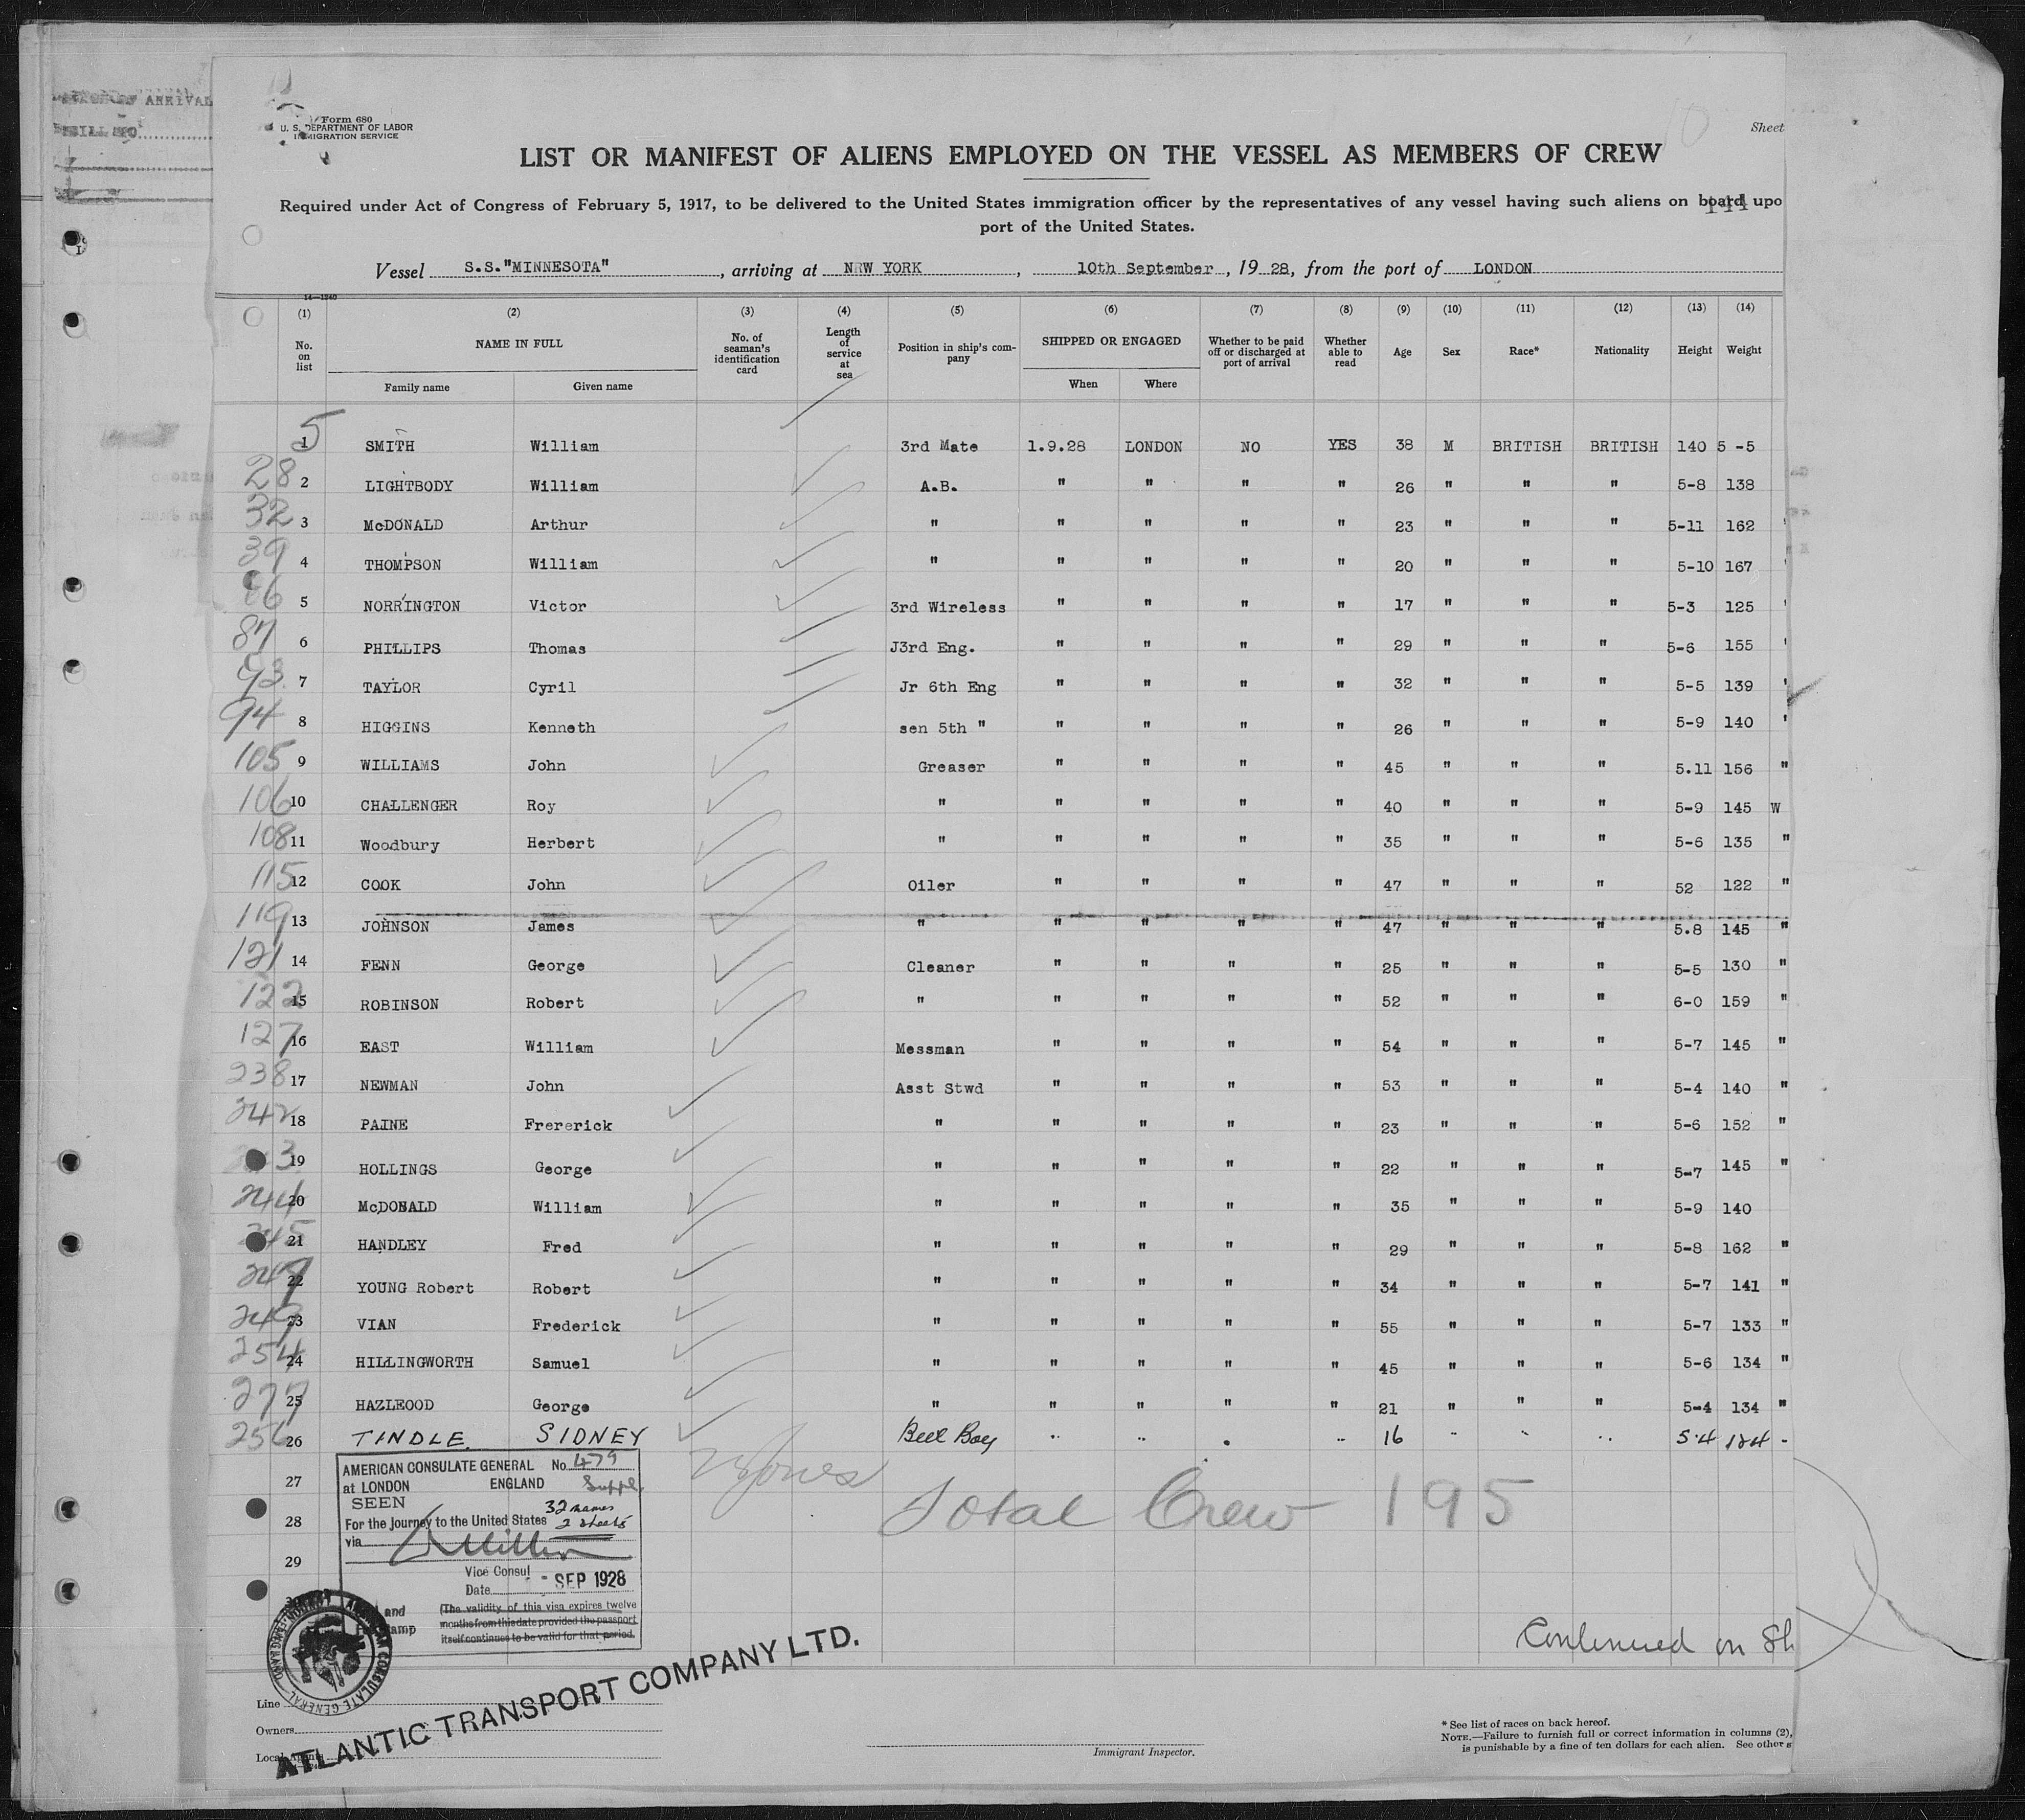 ARRIVAL
Form 680
U. S. DEPARTMENT OF LABOR
IMMIGRATION SERVICE
Sheet
LIST OR MANIFEST OF ALIENS EMPLOYED ON THE VESSEL AS MEMBERS OF CREW
Required under Act of Congress of February 5, 1917, to be delivered to the United States immigration officer by the representatives of any vessel having such aliens on board upo
144
port of the United States.
Vessel S.S."MINNESOTA", arriving at NRW YORK, 10th September, 19 28, from the port of LONDON
14—1240
(1) (2) (3) (4) (5) (6) (7) (8) (9) (10) (11) (12) (13) (14)
No. on list NAME IN FULL No. of seaman's identification card Length of service at sea Position in ship's company SHIPPED OR ENGAGED Whether to be paid off or discharged at port of arrival Whether able to read Age Sex Race* Nationality Height Weight
Family name Given name When Where
5 1 SMITH William 3rd Mate 1.9.28 LONDON NO YES 38 M BRITISH BRITISH 140 5 -5
28 2 LIGHTBODY William A.B. " " " " 26 " " " 5-8 138
32 3 McDONALD Arthur " " " " " 23 " " " 5-11 162
39 4 THOMPSON William " " " " " 20 " " " 5-10 167
5 NORRINGTON Victor 3rd Wireless " " " " 17 " " " 5-3 125
87 6 PHILLIPS Thomas J3rd Eng. " " " " 29 " " " 5-6 155
93 7 TAYLOR Cyril Jr 6th Eng " " " " 32 " " " 5-5 139
94 8 HIGGINS Kenneth sen 5th " " " " " 26 " " " 5-9 140 "
105 9 WILLIAMS John Greaser " " " " 45 " " " 5.11 156 "
106 10 CHALLENGER Roy " " " " " 40 " " " 5-9 145 W
108 11 Woodbury Herbert " " " " " 35 " " " 5-6 135 "
115 12 COOK John Oiler " " " " 47 " " " 52 122 "
119 13 JOHNSON James " " " " " 47 " " " 5.8 145 "
121 14 FENN George Cleaner " " " " 25 " " " 5-5 130 "
122 15 ROBINSON Robert " " " " " 52 " " " 6-0 159 "
127 16 EAST William Messman " " " " 54 " " " 5-7 145 "
238 17 NEWMAN John Asst Stwd " " " " 53 " " " 5-4 140 "
242 18 PAINE Frererick " " " " " 23 " " " 5-6 152 "
19 HOLLINGS George " " " " " 22 " " " 5-7 145 "
244 20 McDONALD William " " " " " 35 " " " 5-9 140
245 21 HANDLEY Fred " " " " " 29 " " " 5-8 162 "
22 YOUNG Robert Robert " " " " " 34 " " " 5-7 141 "
249 23 VIAN Frederick " " " " " 55 " " " 5-7 133 "
254 24 HILLINGWORTH Samuel " " " " " 45 " " " 5-6 134 "
277 25 HAZLEOOD George " " " " " 21 " " " 5-4 134 "
256 26 TINDLE SIDNEY Bell Boy " " " " 16 " " " 5.4 124
27
28
29
AMERICAN CONSULATE GENERAL No. 479
at LONDON ENGLAND Suppl.
SEEN 32 names
For the Journey to the United States 2 sheets
via
Vice Consul
Date SEP 1928
(The validity of this visa expires twelve
months from this date provided the passport
itself continues to be valid for that period.
and
amp
AMERICAN CONSULATE GENERAL LONDON, ENGLAND
Total Crew 195
Continued on Sh
Line
Owners
Local Agents
ATLANTIC TRANSPORT COMPANY LTD.
Immigrant Inspector.
* See list of races on back hereof.
NOTE.—Failure to furnish full or correct information in columns (2),
is punishable by a fine of ten dollars for each alien. See other s